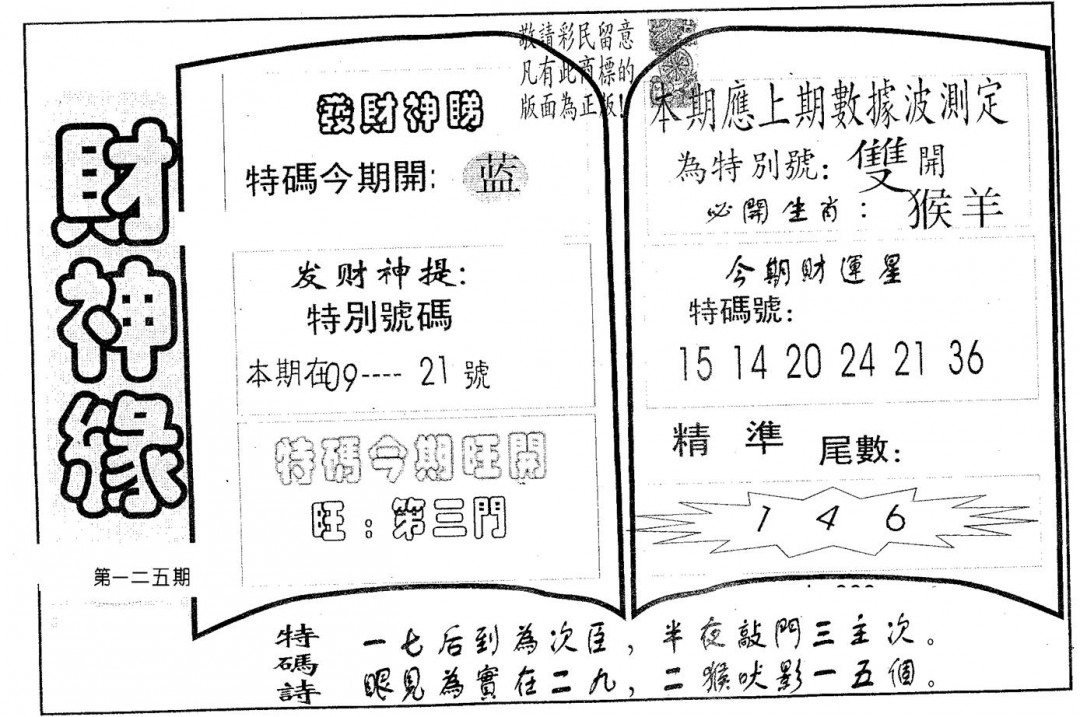 財神緣
第一二五期
敬請彩民留意
凡有此商標的
版面為正版!
發財神睇
特碼今期開: 蓝
发财神提:
特別號碼
本期在09---- 21 號
特碼今期旺開
旺:第三門
本期應上期數據波測定
為特別號: 雙開
必開生肖: 猴羊
今期財運星
特碼號:
15 14 20 24 21 36
精準尾數:
1 4 6
特碼詩
一七后到為次臣,半夜敲門三主次。
眼見為實在二九,二猴吠影一五個。